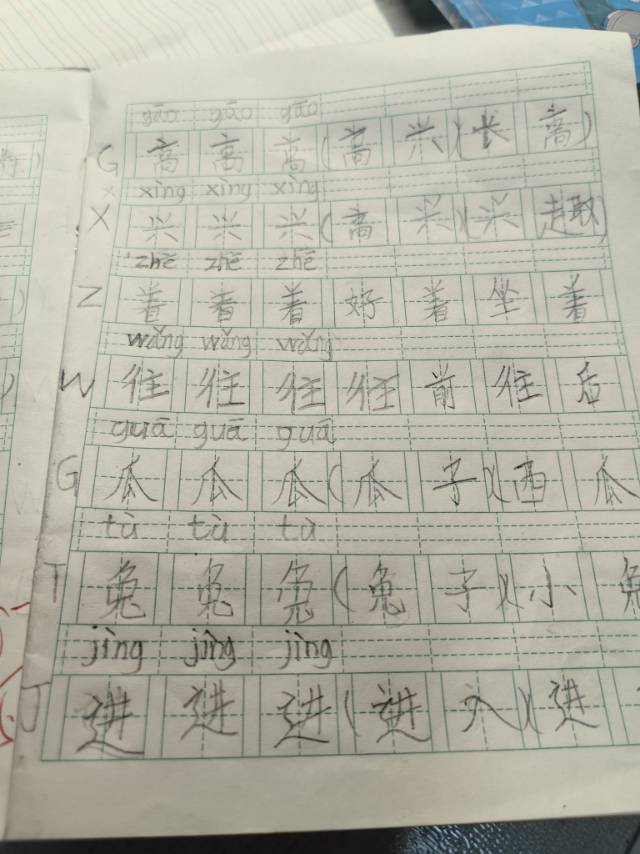 gāo gāo gāo
G 高 高 高 (高 兴)(长 高)
x xìng xìng xìng
X 兴 兴 兴 (高 兴)(兴 趣)
zhē zhē zhē
Z 着 着 着 好 着 坐 着
wǎng wǎng wǎng
W 往 往 往 往 前 往 后
guā guā guā
G 瓜 瓜 瓜 (瓜 子)(西 瓜
tù tù tù
T 兔 兔 兔 (兔 子)(小 兔
jìng jìng jìng
J 进 进 进 (进 入)(进